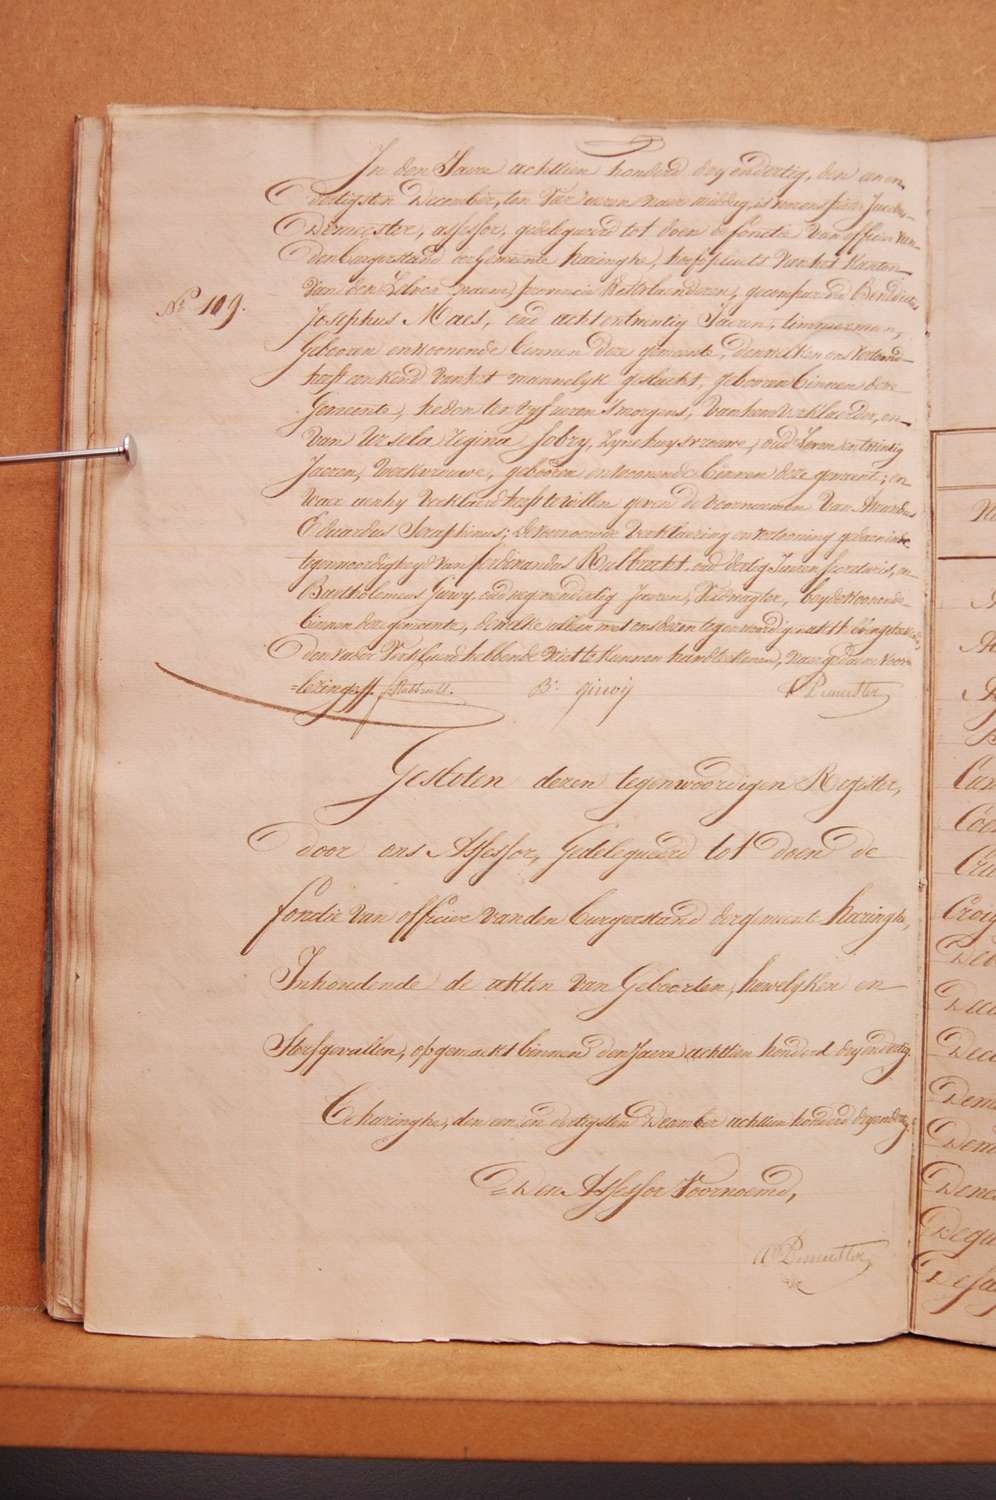 In den Jaere achttien honderd dry en dertig, den een en
dertigsten December, ten vier uren naer middag, is voor ons
Demeester, assessor, gedelegueerd tot doen de fonctie van officier van
den burgerstand der gemeente Haringhe, hoofdplaets van het kanton
van den provincie gecompareerd
Nº 109. Josephus Maes, oud acht en twintig Jaeren, timmerman,
Gebooren en woonende binnen deze gemeente, den welken ons vertoond
heeft een kind van het mannelyk geslacht, gebooren binnen deze
Gemeente, heden ten vyf uren 's morgens, van hem verklaerder, en
van Ursela Regina Sobry, zyne huysvrouwe, oud zeven en twintig
Jaeren, werkvrouwe, gebooren en woonende binnen deze gemeente, en
waer aen hy verklaerd heeft te willen geven de voornaemen van Amandus
Eduardus Seraphinus; de voornoemde verklaering en vertooning gedaen in de
tegenwoordigheyd van Ferdinandus Rubbrecht, oud dertig Jaeren, en
Bartholomeus Juwy, oud negenendertig Jaeren, Veldwagter, beyde woonende
binnen deze gemeente, dewelke alleen met ons dezen tegenwoordigen akt
den vader verklaerd hebbende niet te kunnen handteekenen, naer gedaene voor-
=lezing. B.
Gesloten dezen tegenwoordigen Register,
door ons Assessor, Gedelegueerd tot doen de
fonctie van officier van den burgerstand der gemeente Haringhe,
Inhoudende de akten van Geboorten, huwelyken en
Sterfgevallen, opgemaekt binnen den Jaere achttien honderd dry en dertig
Te Haringhe, den een en dertigsten December achttien honderd dry en dertig.
Den Assessor Voornoemd,
Demeester